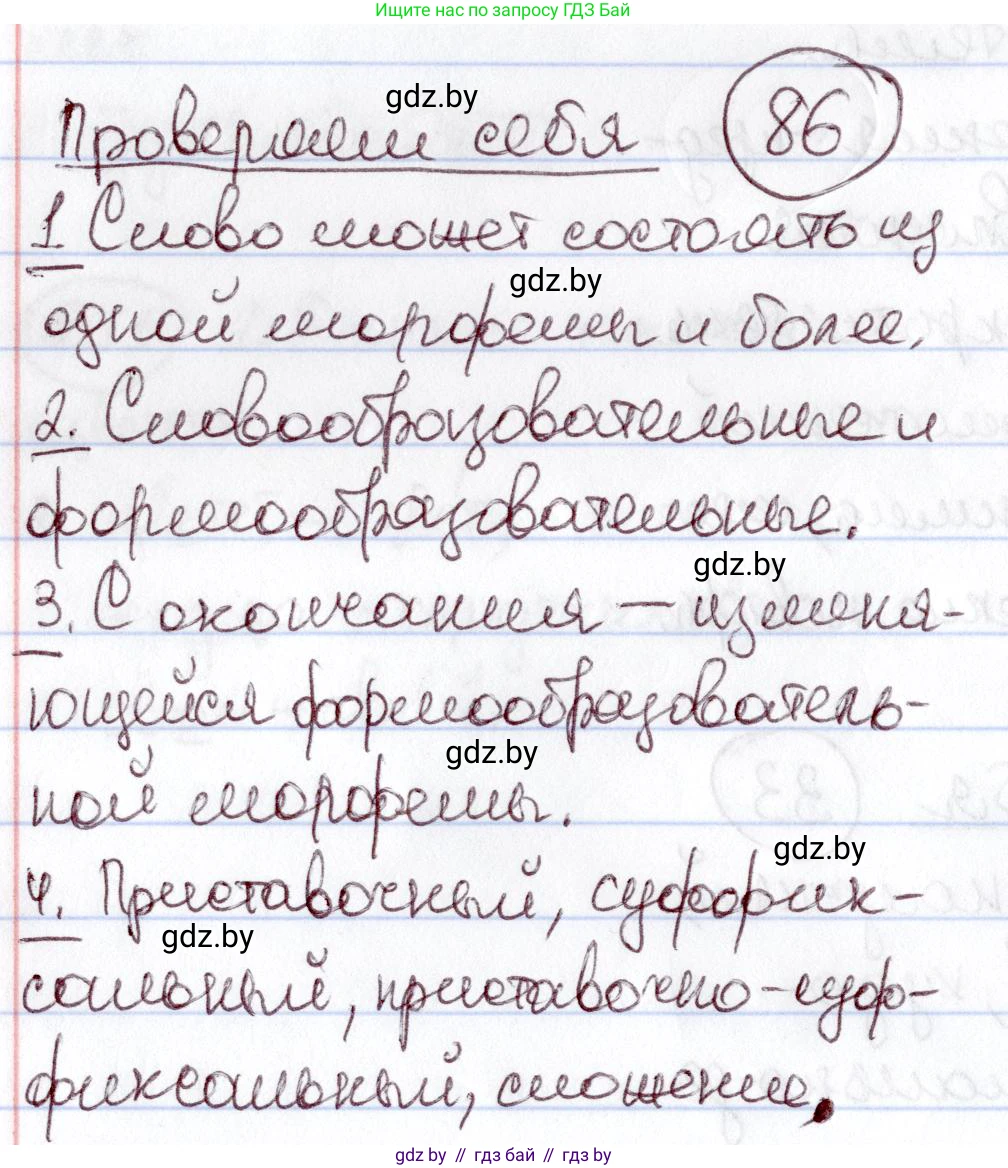 Ищите нас по запросу ГДЗ Бай
gdz.by
Проверяем себя 86
1 Слово может состоять из
gdz.by
одной морфемы и более.
2. Словообразовательные и
формообразовательные.
gdz.by
3. С окончания – изменя-
ющейся формообразователь-
gdz.by
ной морфемы.
gdz.by
4. Приставочный, суффик-
gdz.by
сальный, приставочно-суф-
фиксальный, сложение.
gdz.by // гдз бай // гдз by